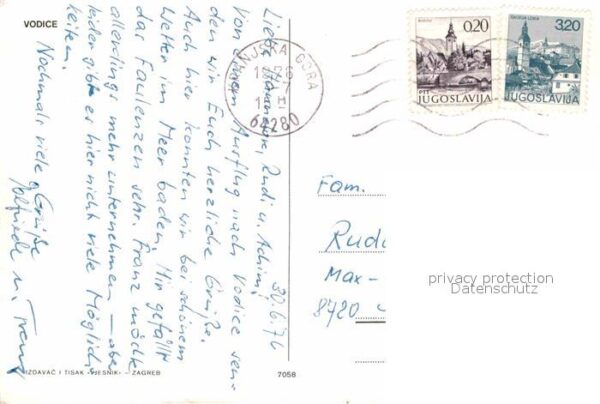 VODICE
30.6.76
Liebe Hannelore, Rudi u. Achim!
Von einem Ausflug nach Vodice sen-
den wir Euch herzliche Grüße.
Auch hier konnten wir bei schönem
Wetter im Meer baden. Mir gefällt
das Faulenzen sehr. Franz möchte
allerdings mehr unternehmen – aber
leider gibt es hier nicht viele Möglich-
keiten.
Nochmals viele Grüße
u. Franz
KRANJSKA GORA
64280
0,20
JUGOSLAVIJA
ŠKOFJA LOKA
3,20
JUGOSLAVIJA
Fam.
Rud
Max-
8720
privacy protection
Datenschutz
IZDAVAČ I TISAK »VJESNIK« – ZAGREB
7058